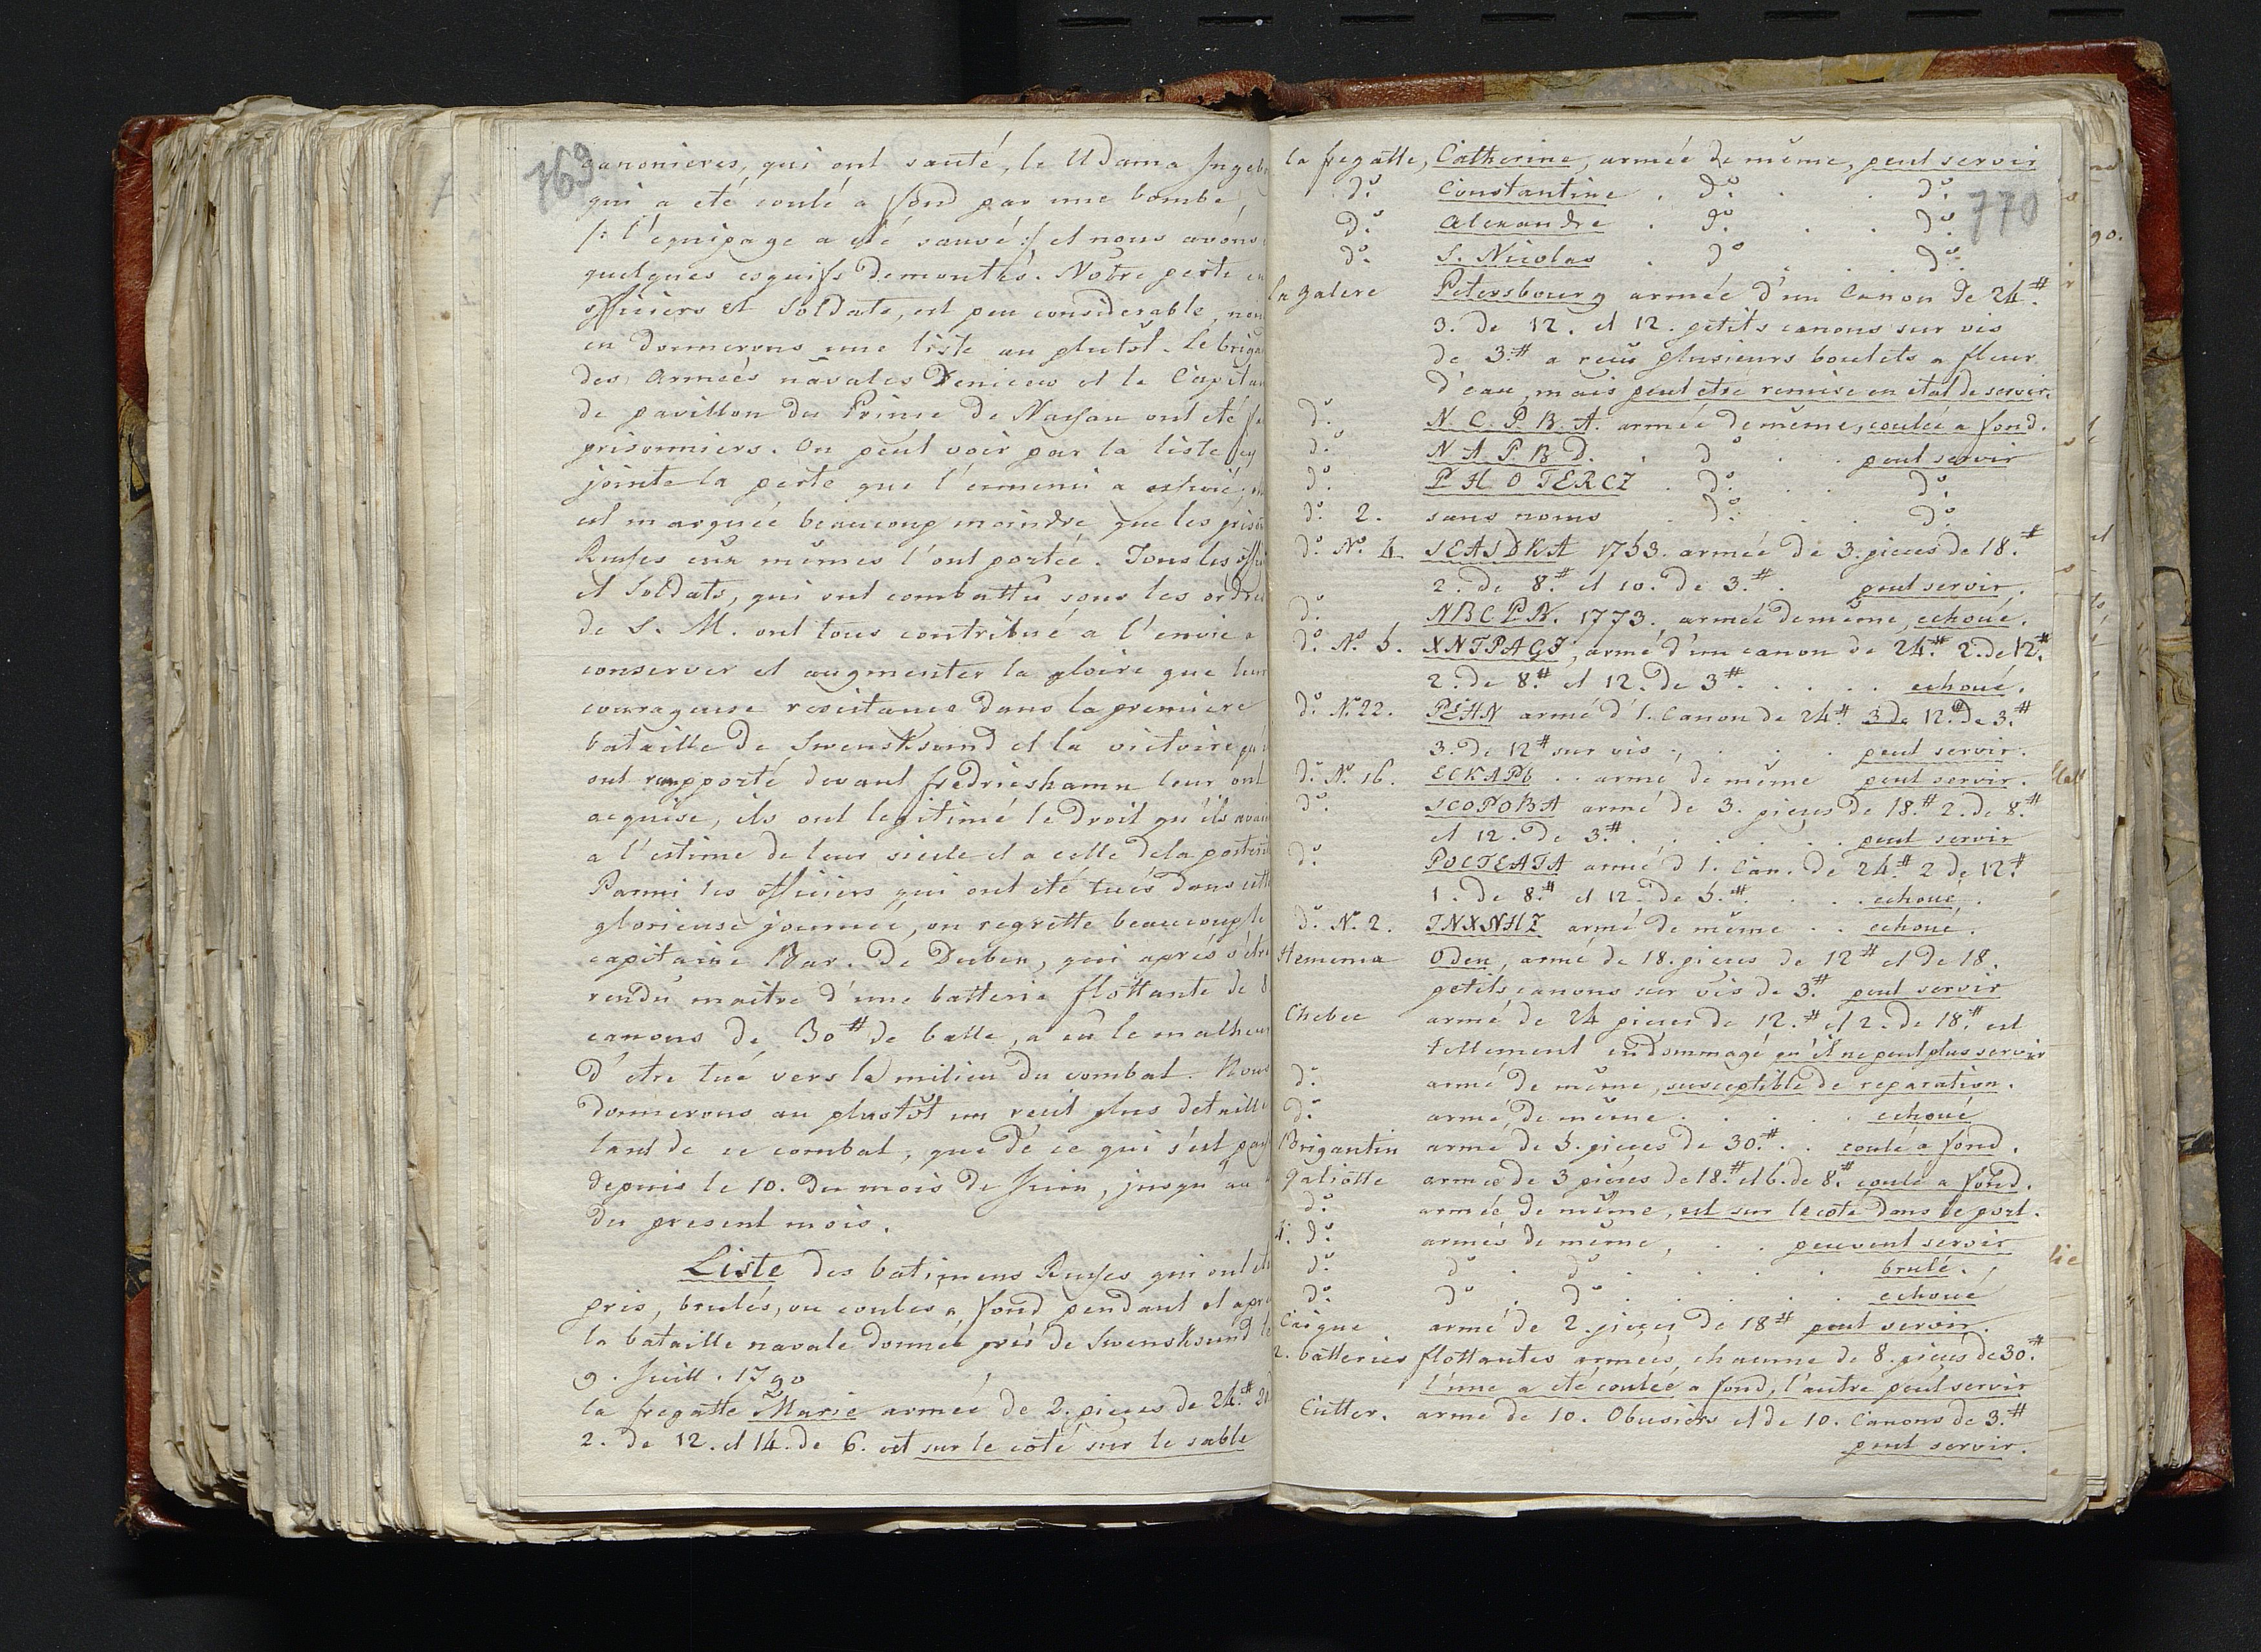 769
canonieres, qui ont sauté, le Udama Ingeb
qui a eté coulé a fond par une bombe,
/: l'equipage a eté sauvé :/ et nous avons
quelques esquifs demontés. Nôtre perte en
officiers et Soldats, est peu considerable, nou
en donnerons une liste au plutôt. Le briga
des Armeés navales Denicew et le Capitai
de pavillon du Prince de Nassau ont eté fa
prisonniers. On peut voir par la liste cy
jointe la perte que l'ennemi a
est marqueé beaucoup moindre, que les priso
Russes eux mêmes l'ont porteé. Tous les offi
et Soldats, qui ont combattu sous les ordres
de S. M. ont tous contribué a l'envie a
conserver et augmenter la gloire que leur
courageuse resistance dans la premiere
bataille de Swensksund et la victoire qu'i
ont rapporté devant fredrieshamn leur ont
acquise, ils ont legitimé le droit qu'ils avai
a l'estime de leur siecle et a celle de la posteri
Parmi les officiers qui ont eté tués dans cette
glorieuse journeé, on regrette beaucoup le
capitaine Bar. De Duben, qui aprés s'etre
rendu maitre d'une batterie flottante de 8
canons de 30# de balle, a eu le malheur
d'etre tué vers le milieu du combat. Nous
donnerons au plustôt un recit plus detaillé
tant de ce combat, que de ce qui s'est pass
depuis le 10. du mois de Juin, jusqu'au
du present mois.
Liste des batimens Russes qui ont eté
pris, brulés, ou coulés a fond pendant et apre
la bataille navale donneé près de Swensksund le
9. Juill. 1790
la fregatte Marie armeé de 2. pieces de 24.# 20
2. de 12. et 14. de 6. est sur le coté sur le sable
770
la fregatte, Catherine, armeé de même, peut servir
d.o Constantine . d.o . . d.o
d.o Alexandre . d.o . . d.o
d.o S. Nicolas . d.o . . d.o
la Galere Petersbourg armeé d'un Canon de 24.#
3. de 12. et 12. petits canons sur vis
de 3.# a reçu plusieurs boulets a fleur
d'eau, mais peut etre remise en etat de servir.
d.o N. C. P. B. A. armeé de même, couleé a fond.
d.o N A P B D. . d.o . . peut servir
d.o P H O TERCZ . d.o . . d.o
d.o 2. sans noms . d.o . . d.o
d.o N.o 4. SEASDKA 1753. armeé de 3. pieces de 18.#
2. de 8.# et 10. de 3.# . peut servir.
d.o NBCPN. 1773. armeé de même, echoué.
d.o N.o 5. XNTPAGI, armé d'un canon de 24.# 2. de 12.#
2. de 8.# et 12. de 3.# . . . . echoué.
d.o N.o 22. PEHN armé d'1. Canon de 24.# 3 de 12.# de 3.#
3. de 12# sur vis . . . . peut servir.
d.o N.o 16. ECKAPb . . armé de même peut servir.
d.o SCOPOBA armé de 3. pieces de 18.# 2. de 8.#
et 12. de 3.# . . . . . . peut servir
d.o POCTEATA armé d'1. Can. de 24.# 2 de 12#
1. de 8.# et 12. de 3.# . . . echoué.
d.o N.o 2. INXNHZ armé de même . . echoué.
Hemema Oden, armé de 18. pieces de 12# et de 18.
petits canons sur vis de 3.# peut servir
Chebec armé de 24 pieces de 12.# et 2. de 18.# est
tellement endommagé qu'il ne peut plus servir
d.o armé de même, susceptible de reparation.
d.o armé de même . . . . echoué
Brigantin armé de 5. pieces de 30.# . . coulé a fond.
Galiotte armeé de 3 pieces de 18.# et 6. de 8.# coulé a fond.
d.o armeé de même, est sur le coté dans le port.
4. d.o armés de même, . . peuvent servir
d.o d.o . d.o . . . . . brulé.
d.o d.o . d.o . . . . . echoué
Caique armé de 2. pieces de 18# peut servir.
2. batteries flottantes armeés, chacune de 8. pieces de 30.#
l'une a eté couleé a fond, l'autre peut servir
Cutter. armé de 10. Obusiers et de 10. Canons de 3.#
peut servir.